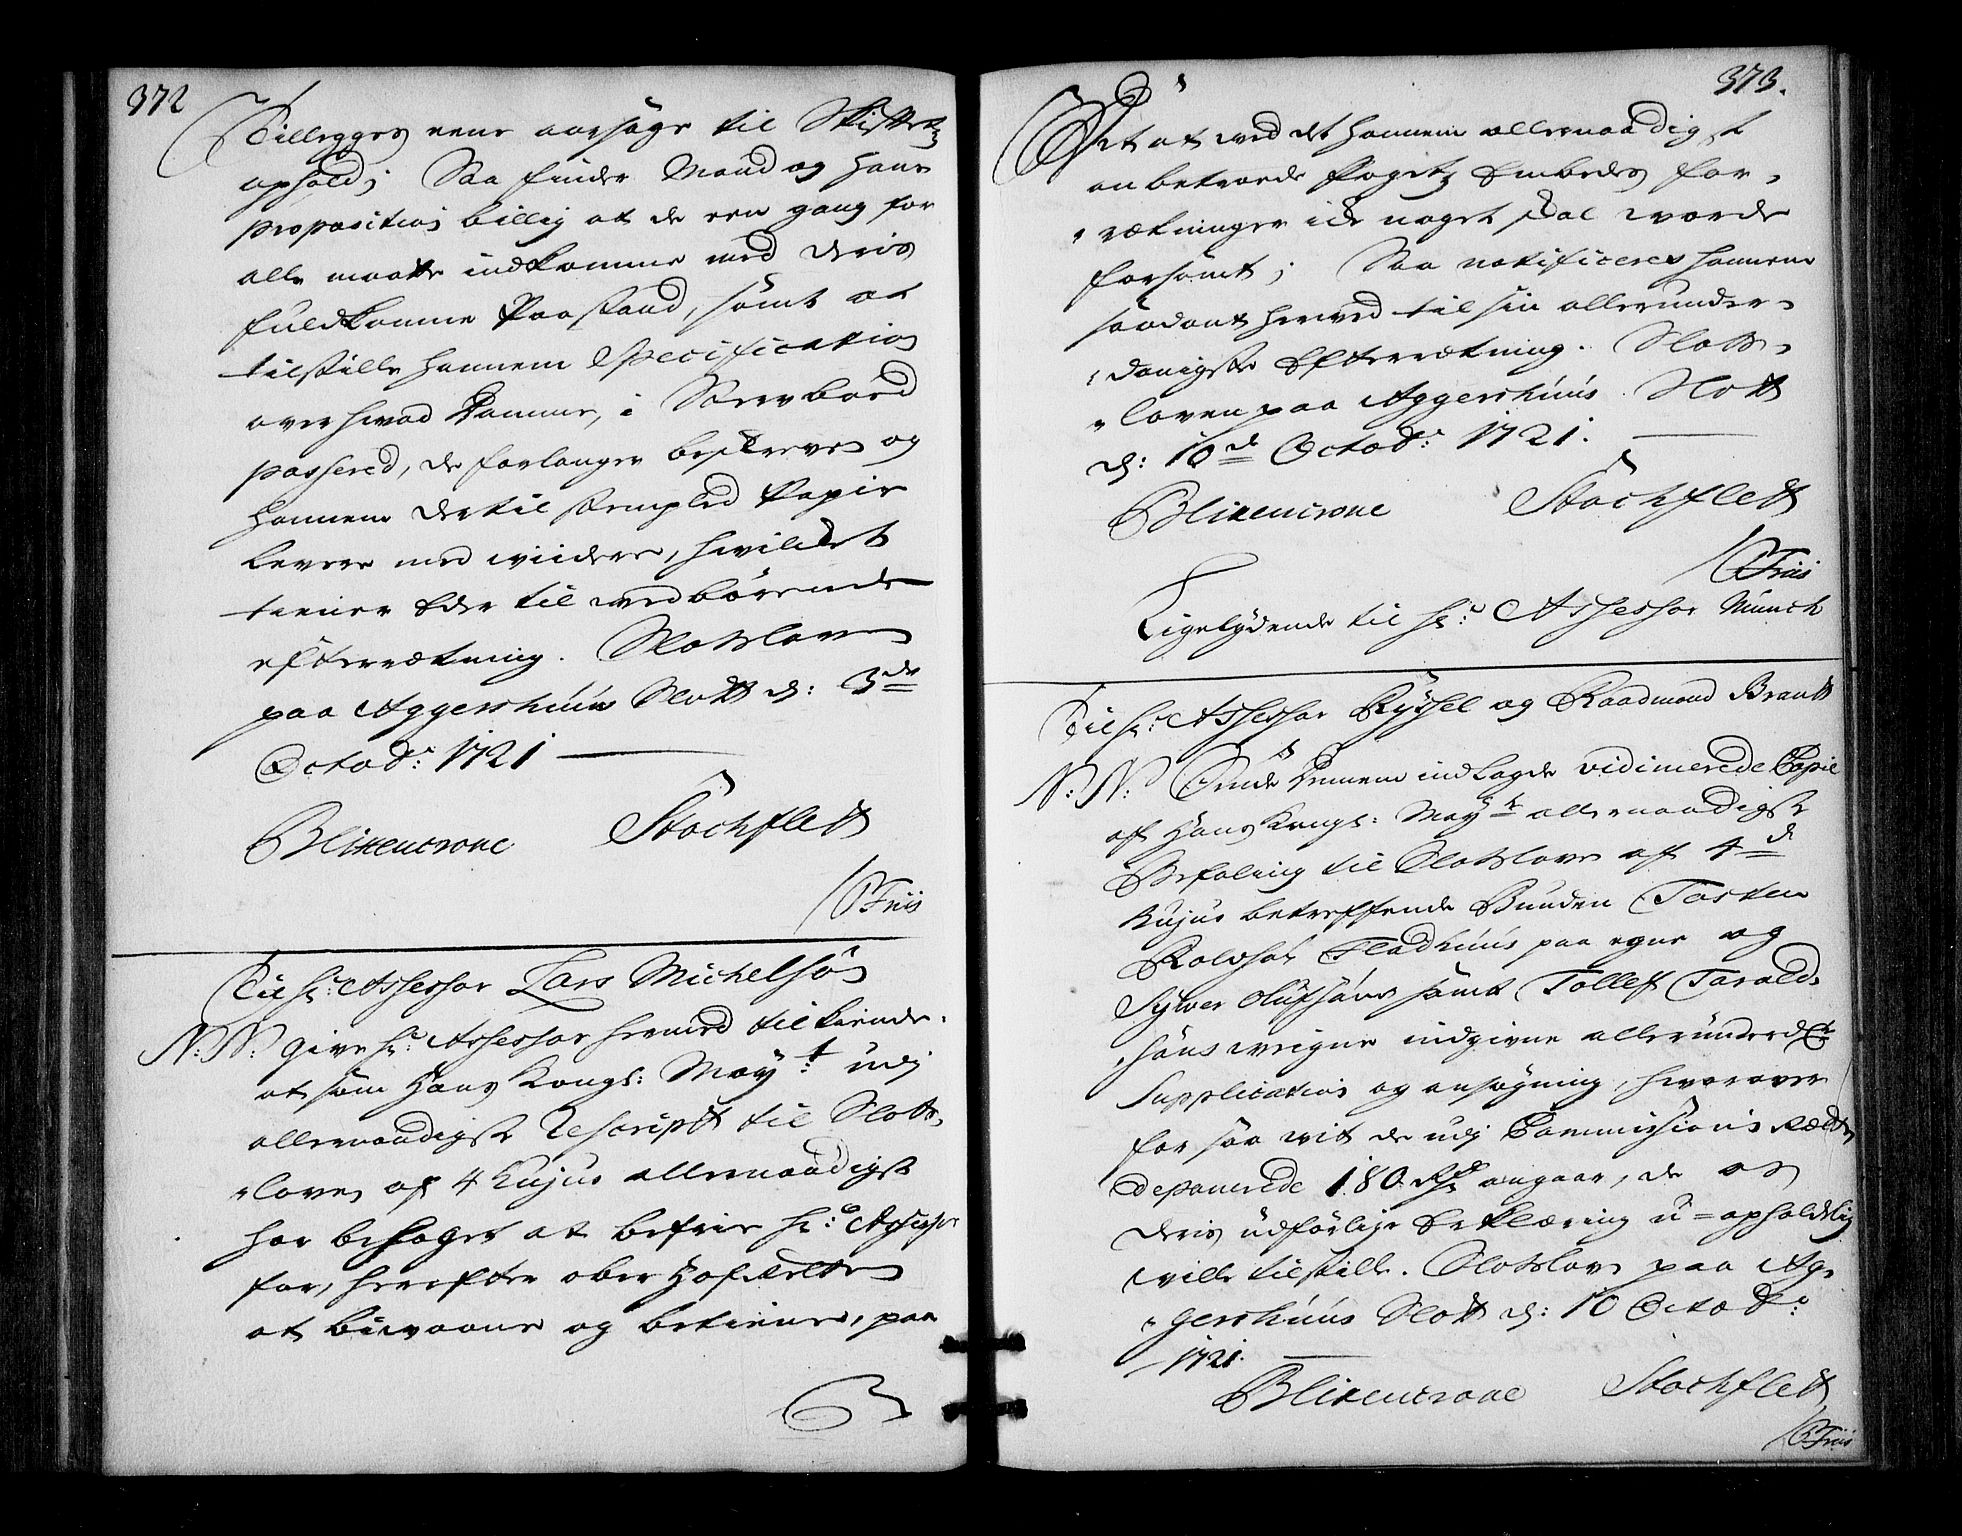 372
Tillegges eene aarsage til Skiftetz
ophold; Saa finder Mand og hans
proposition billig at de een gang for
alle maatte indkomme med deris
fuldkomne Paastand, samt at
tilstille hannem Specification
over hvad Domme, i
passered, de forlanger beskreven og
hannem dertil stempled Papir
levere med viidere, hvilcket
tiener Eder til vedbørende
efterretning. Slotzloven
paa Aggershuus Slott d: 3de
Octobr: 1721
Blixencrone Stochflett
/ Friis
Til hr: Assessor Lars Michelsøn
N: N: give hr: Assessor hermed tilkiende
at som Hans Kongl: Mayt: udj
allernaadigste Rescript til Slotz
loven af 4 hujus allernaadigst
har behaget at befrie hr: Assessor
for, herefter ober Hofretten
at bievaane og betiene, paa
373.
Det at ved det hannem allernaadigst
anbetroede Fogetz Embedes for
rætninger icke noget skal worde
forsømt; Saa notificeres hannem
saadant herved til sin allerunder
danigste Efterretning. Slotz
loven paa Aggershuus Slott
d: 10de Octobr: 1721.
Blixencrone Stochflett
/ Friis
Ligelydende til hr: Assessor Munch
Til hr: Assessor Ryssel og Raadmand Brandt
N: N: Sende dennem indlagde vidimerede Copie
aff Hans Kongl: Mayts allernaadigste
Befaling til Slotzloven af 4de
hujus betreffende Bunden Tosten
Rolvsøn Fladhuus paa egne og
Sylver Olufsøns samt Tollef Tarald
søns weigne indgivne allerunderd.
Supplication og ansøgning, hvorover
for saa vit de udj Commissions Rætten
deponerede 180 Rd. angaar, de os
deris udførlige Erklæring u-opholdelig
ville tilstille. Slotzloven paa Ag
gershuus Slott d: 10 Octobr:
1721.
Blixencrone Stochflett
/ Friis